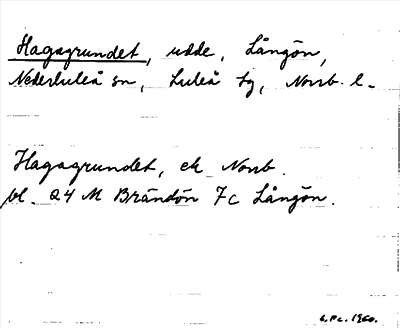 Hagagrundet, udde, Långön,
Nederluleå sn, Luleå tg, Norrb. l.
Hagagrundet, ek Norrb.
bl. 24 M Brändön 7c Långön.
1960.